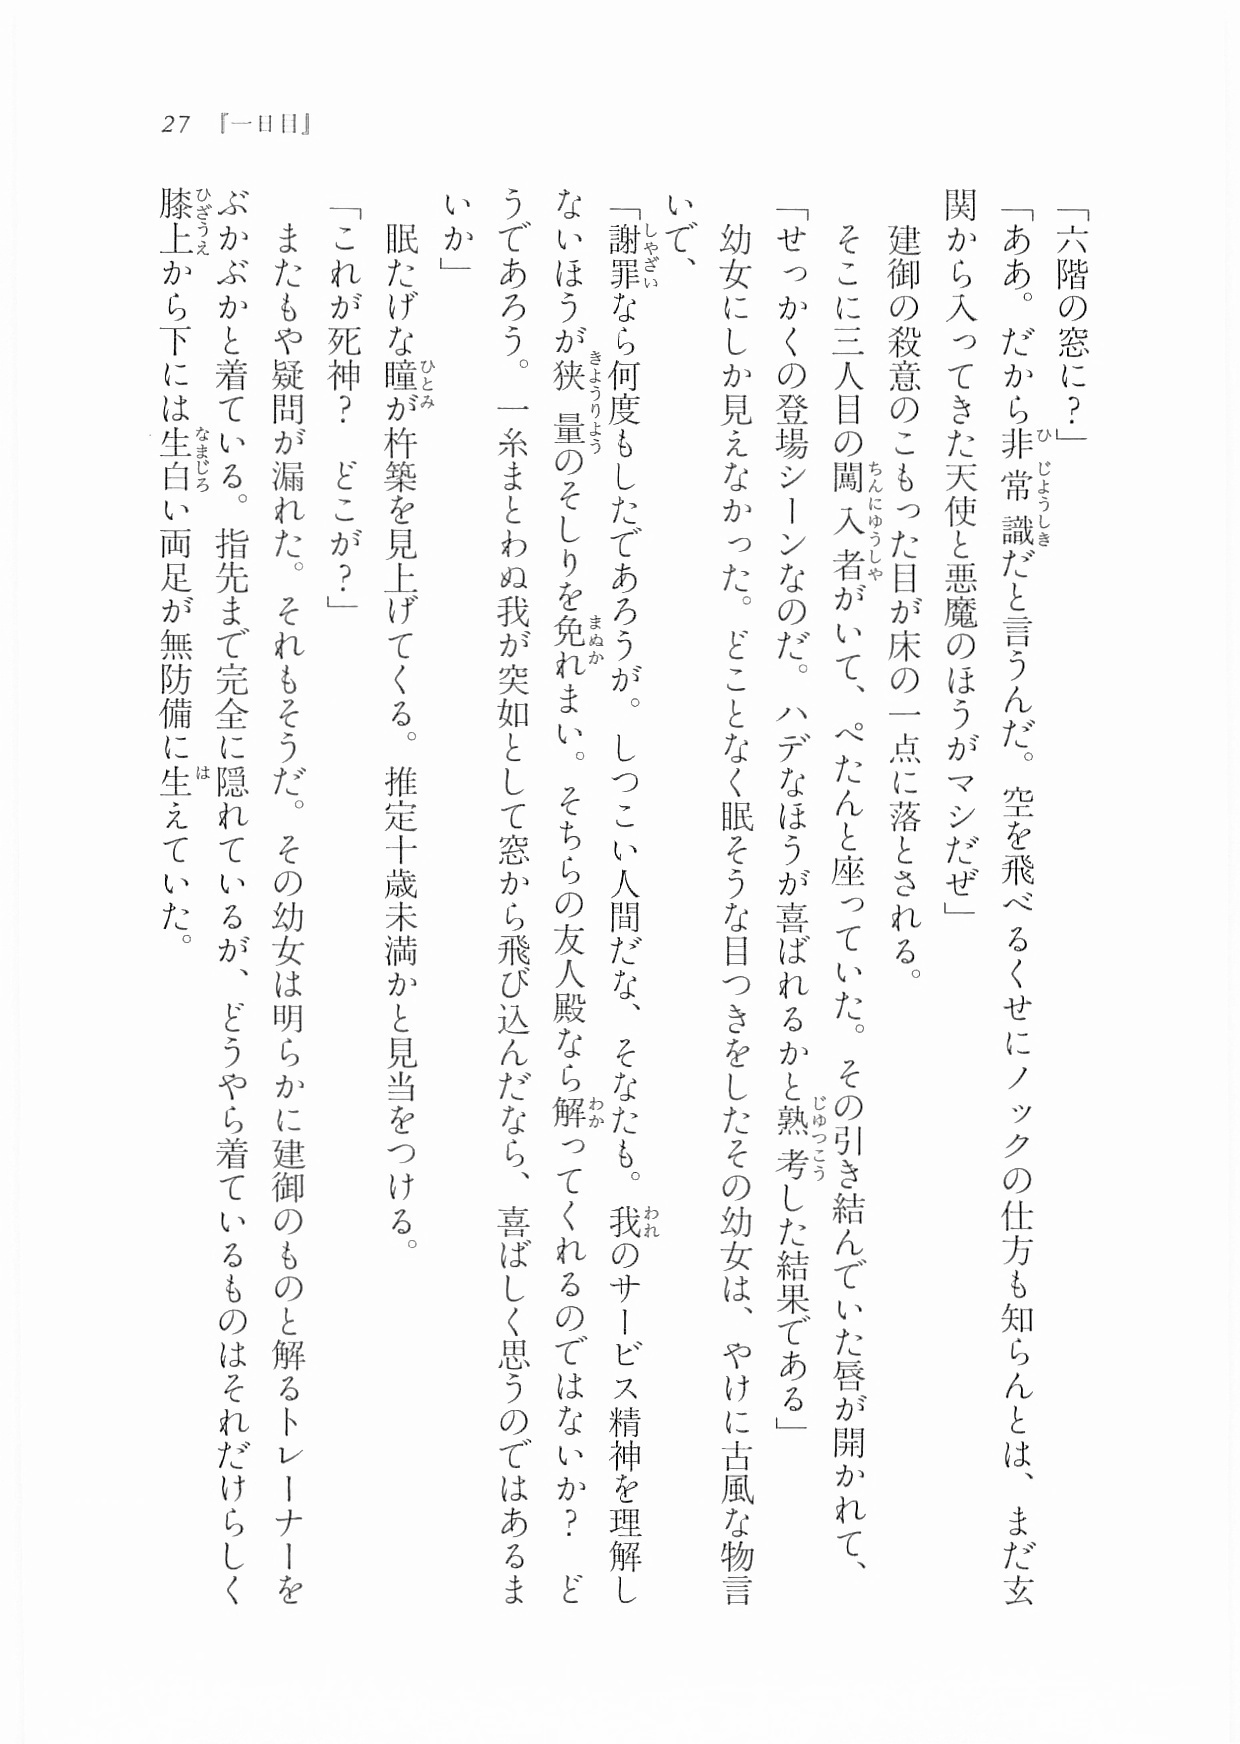 27 『一日目』
「六階の窓に？」
「ああ。だから非常識だと言うんだ。空を飛べるくせにノックの仕方も知らんとは、まだ玄
関から入ってきた天使と悪魔のほうがマシだぜ」
建御の殺意のこもった目が床の一点に落とされる。
そこに三人目の闖入者がいて、ぺたんと座っていた。その引き結んでいた唇が開かれて、
「せっかくの登場シーンなのだ。ハデなほうが喜ばれるかと熟考した結果である」
幼女にしか見えなかった。どことなく眠そうな目つきをしたその幼女は、やけに古風な物言
いで、
「謝罪なら何度もしたであろうが。しつこい人間だな、そなたも。我のサービス精神を理解し
ないほうが狭量のそしりを免れまい。そちらの友人殿なら解ってくれるのではないか？　ど
うであろう。一糸まとわぬ我が突如として窓から飛び込んだなら、喜ばしく思うのではあるま
いか」
眠たげな瞳が杵築を見上げてくる。推定十歳未満かと見当をつける。
「これが死神？　どこが？」
またもや疑問が漏れた。それもそうだ。その幼女は明らかに建御のものと解るトレーナーを
ぶかぶかと着ている。指先まで完全に隠れているが、どうやら着ているものはそれだけらしく
膝上から下には生白い両足が無防備に生えていた。